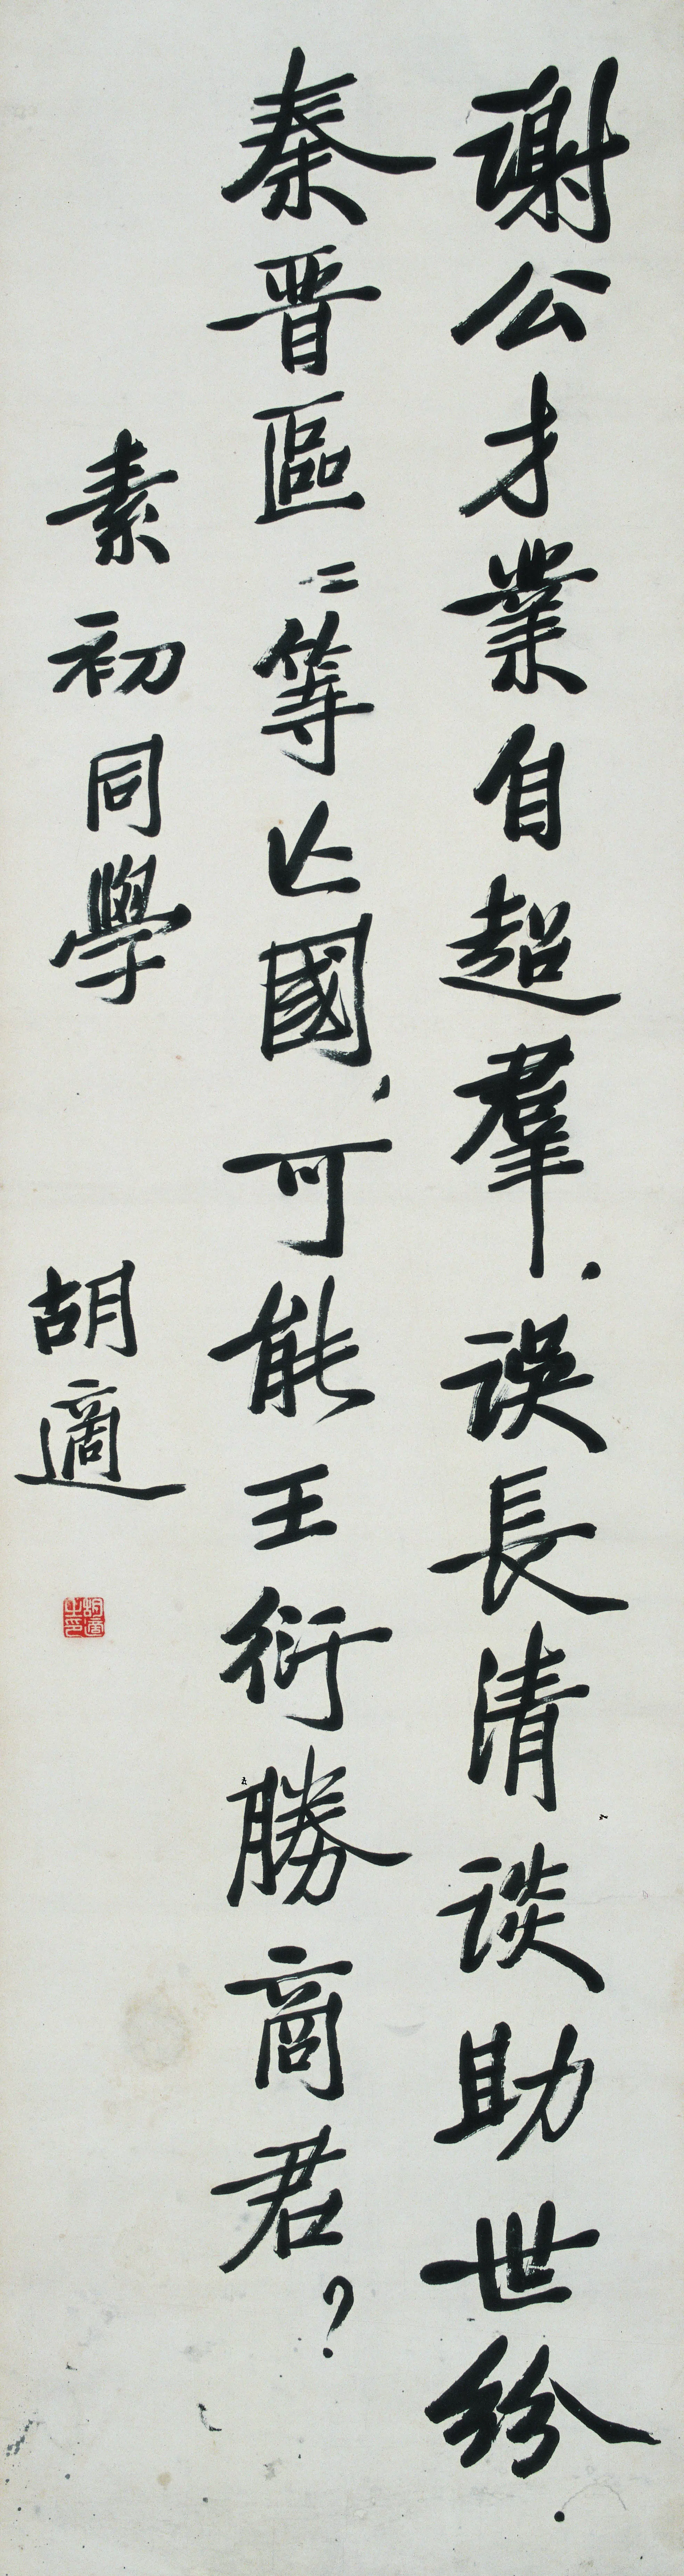 謝公才業自超羣.誤長清談助世紛.
秦晋區〻等亡國,可能王衍勝商君?
素初同學
胡適
胡適之印